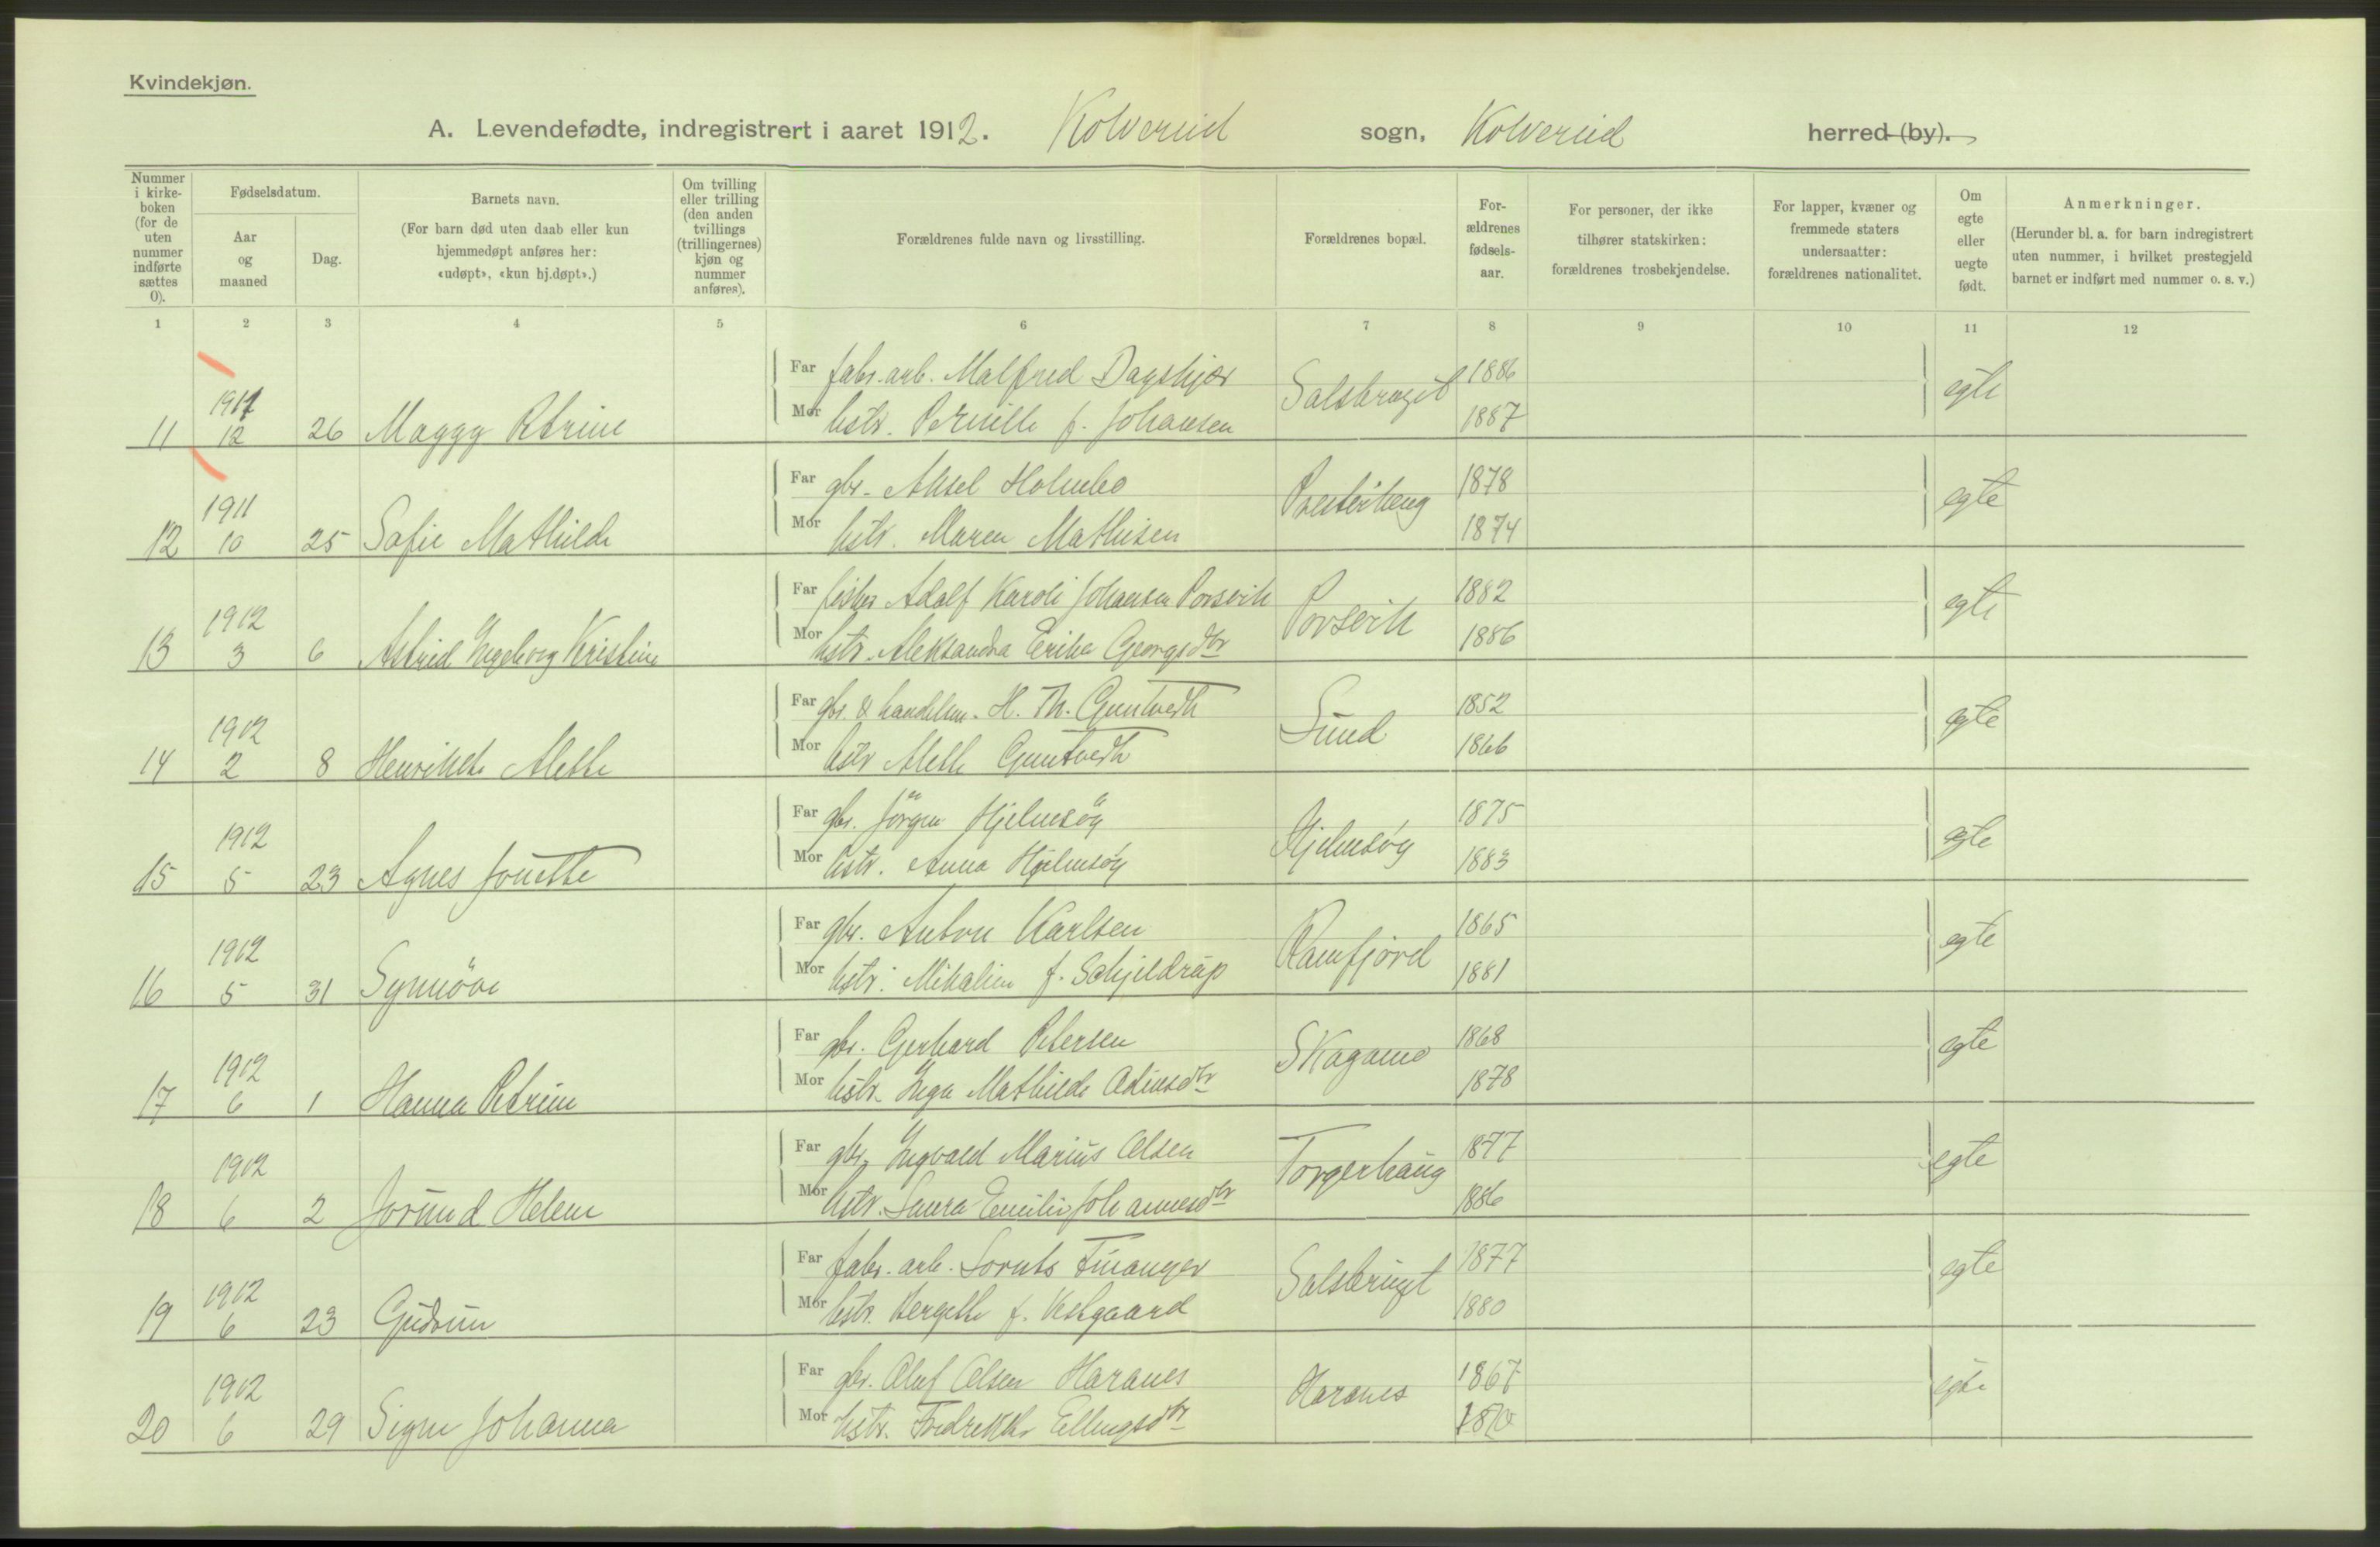 Kvindekjøn.
A. Levendefødte, indregistrert i aaret 1912. Kolvereid sogn, Kolvereid herred (by).
Nummer i kirke-boken (for de uten nummer indførte sættes 0).
Fødselsdatum.
Aar og maaned
Dag.
Barnets navn.
(For barn død uten daab eller kun hjemmedøpt anføres her: «udøpt», «kun hj.døpt».)
Om tvilling eller trilling (den anden tvillings (trillingernes) kjøn og nummer anføres).
Forældrenes fulde navn og livsstilling.
Forældrenes bopæl.
For-ældrenes fødsels-aar.
For personer, der ikke tilhører statskirken: forældrenes trosbekjendelse.
For lapper, kvæner og fremmede staters undersaatter: forældrenes nationalitet.
Om egte eller uegte født.
Anmerkninger.
(Herunder bl. a. for barn indregistrert uten nummer, i hvilket prestegjeld barnet er indført med nummer o. s. v.)
1 2 3 4 5 6 7 8 9 10 11 12
Far fabr. arb. Malfred 1886
1911 Salsbruget egte
Mor hstr. Pernille f. Johansen 1887
11 12 26 Maggy Petrine
Far gbr. Aksel Holmbo 1878
1911 egte
Mor hstr. Maren Mathisen 1874
12 10 25 Sofie Mathilde
Far fisker Adolf Karoli Johansen Porsvik 1882
1912 Porsvik egte
Mor hstr. Aleksandra Erika Georgsdtr 1886
13 3 6 Astrid Ingeborg Kristine
Far gbr. & handelsm. H. Th. Guntvedt 1852
1912 Sund egte
Mor hstr Alette Guntvedt 1866
14 2 8 Henrikke Alette
Far gbr. Jörgen Hjelmsöy 1875
1912 Hjelmsöy egte
Mor hstr. Anna Hjelmsöy 1883
15 5 23 Agnes Jonette
Far gbr. Anton Karlsen 1865
1912 Ramfjord egte
Mor hstr. Mikaline f. Schjeldrup 1881
16 5 31 Synnöve
Far gbr. Gerhard Petersen 1868
1912 Skagamo egte
Mor hstr. Inga Mathilde Odinsdtr 1878
17 6 1 Hanna Petrine
Far gbr. Ingvald Marius Olsen 1877
1912 Torgerhaug egte
Mor hstr. Laura Emilie Johannesdtr 1886
18 6 2 Jorund Helene
Far fabr. arb. Lornts Finanger 1877
1912 Salsbruget egte
Mor hstr. Bergitte f. Vestgaard 1880
19 6 23 Gudrun
Far gbr. Oluf Olsen Haranes 1867
1912 Haranes egte
Mor hstr. Fredrikke Ellingsdtr
20 6 29 Signe Johanna